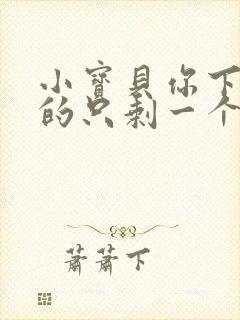 小寶貝你下
的只剩一个
蕭蕭下